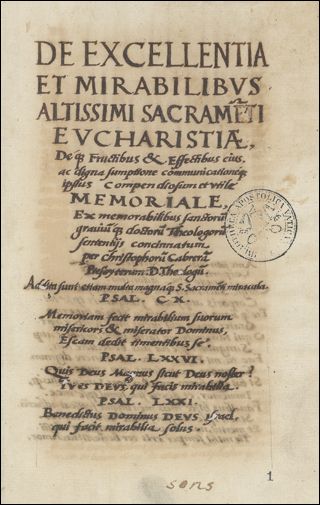 DE EXCELLENTIA
ET MIRABILIBVS
ALTISSIMI SACRAMĒTI
EVCHARISTIÆ,
De q́; Fructibus & Effectibus eius,
ac digna sumptione communicationeq́;
ipsius Compendiosum et vtile
MEMORIALE,
Ex memorabilibus sanctorū
grauiū q́; doctorū Theologorū
sententijs concinnatum
per christophorū Cabrerā
Presyterum D. Theologū.
Addita sunt etiam multa magnaq́; S. Sacramēti miracula.
PSAL. C X.
Memoriam fecit mirabilium suorum
misericors & miserator Dominus,
Escam dedit timentibus se.
PSAL. LXXVI.
Quis Deus Magnus sicut Deus noster?
Tu es DEVS, qui facis mirabilia.
PSAL. LXXI.
Benedictus Dominus DEVS Israel,
qui facit mirabilia solus.
BIBLIOTHECA APOSTOLICA VATICANA
1